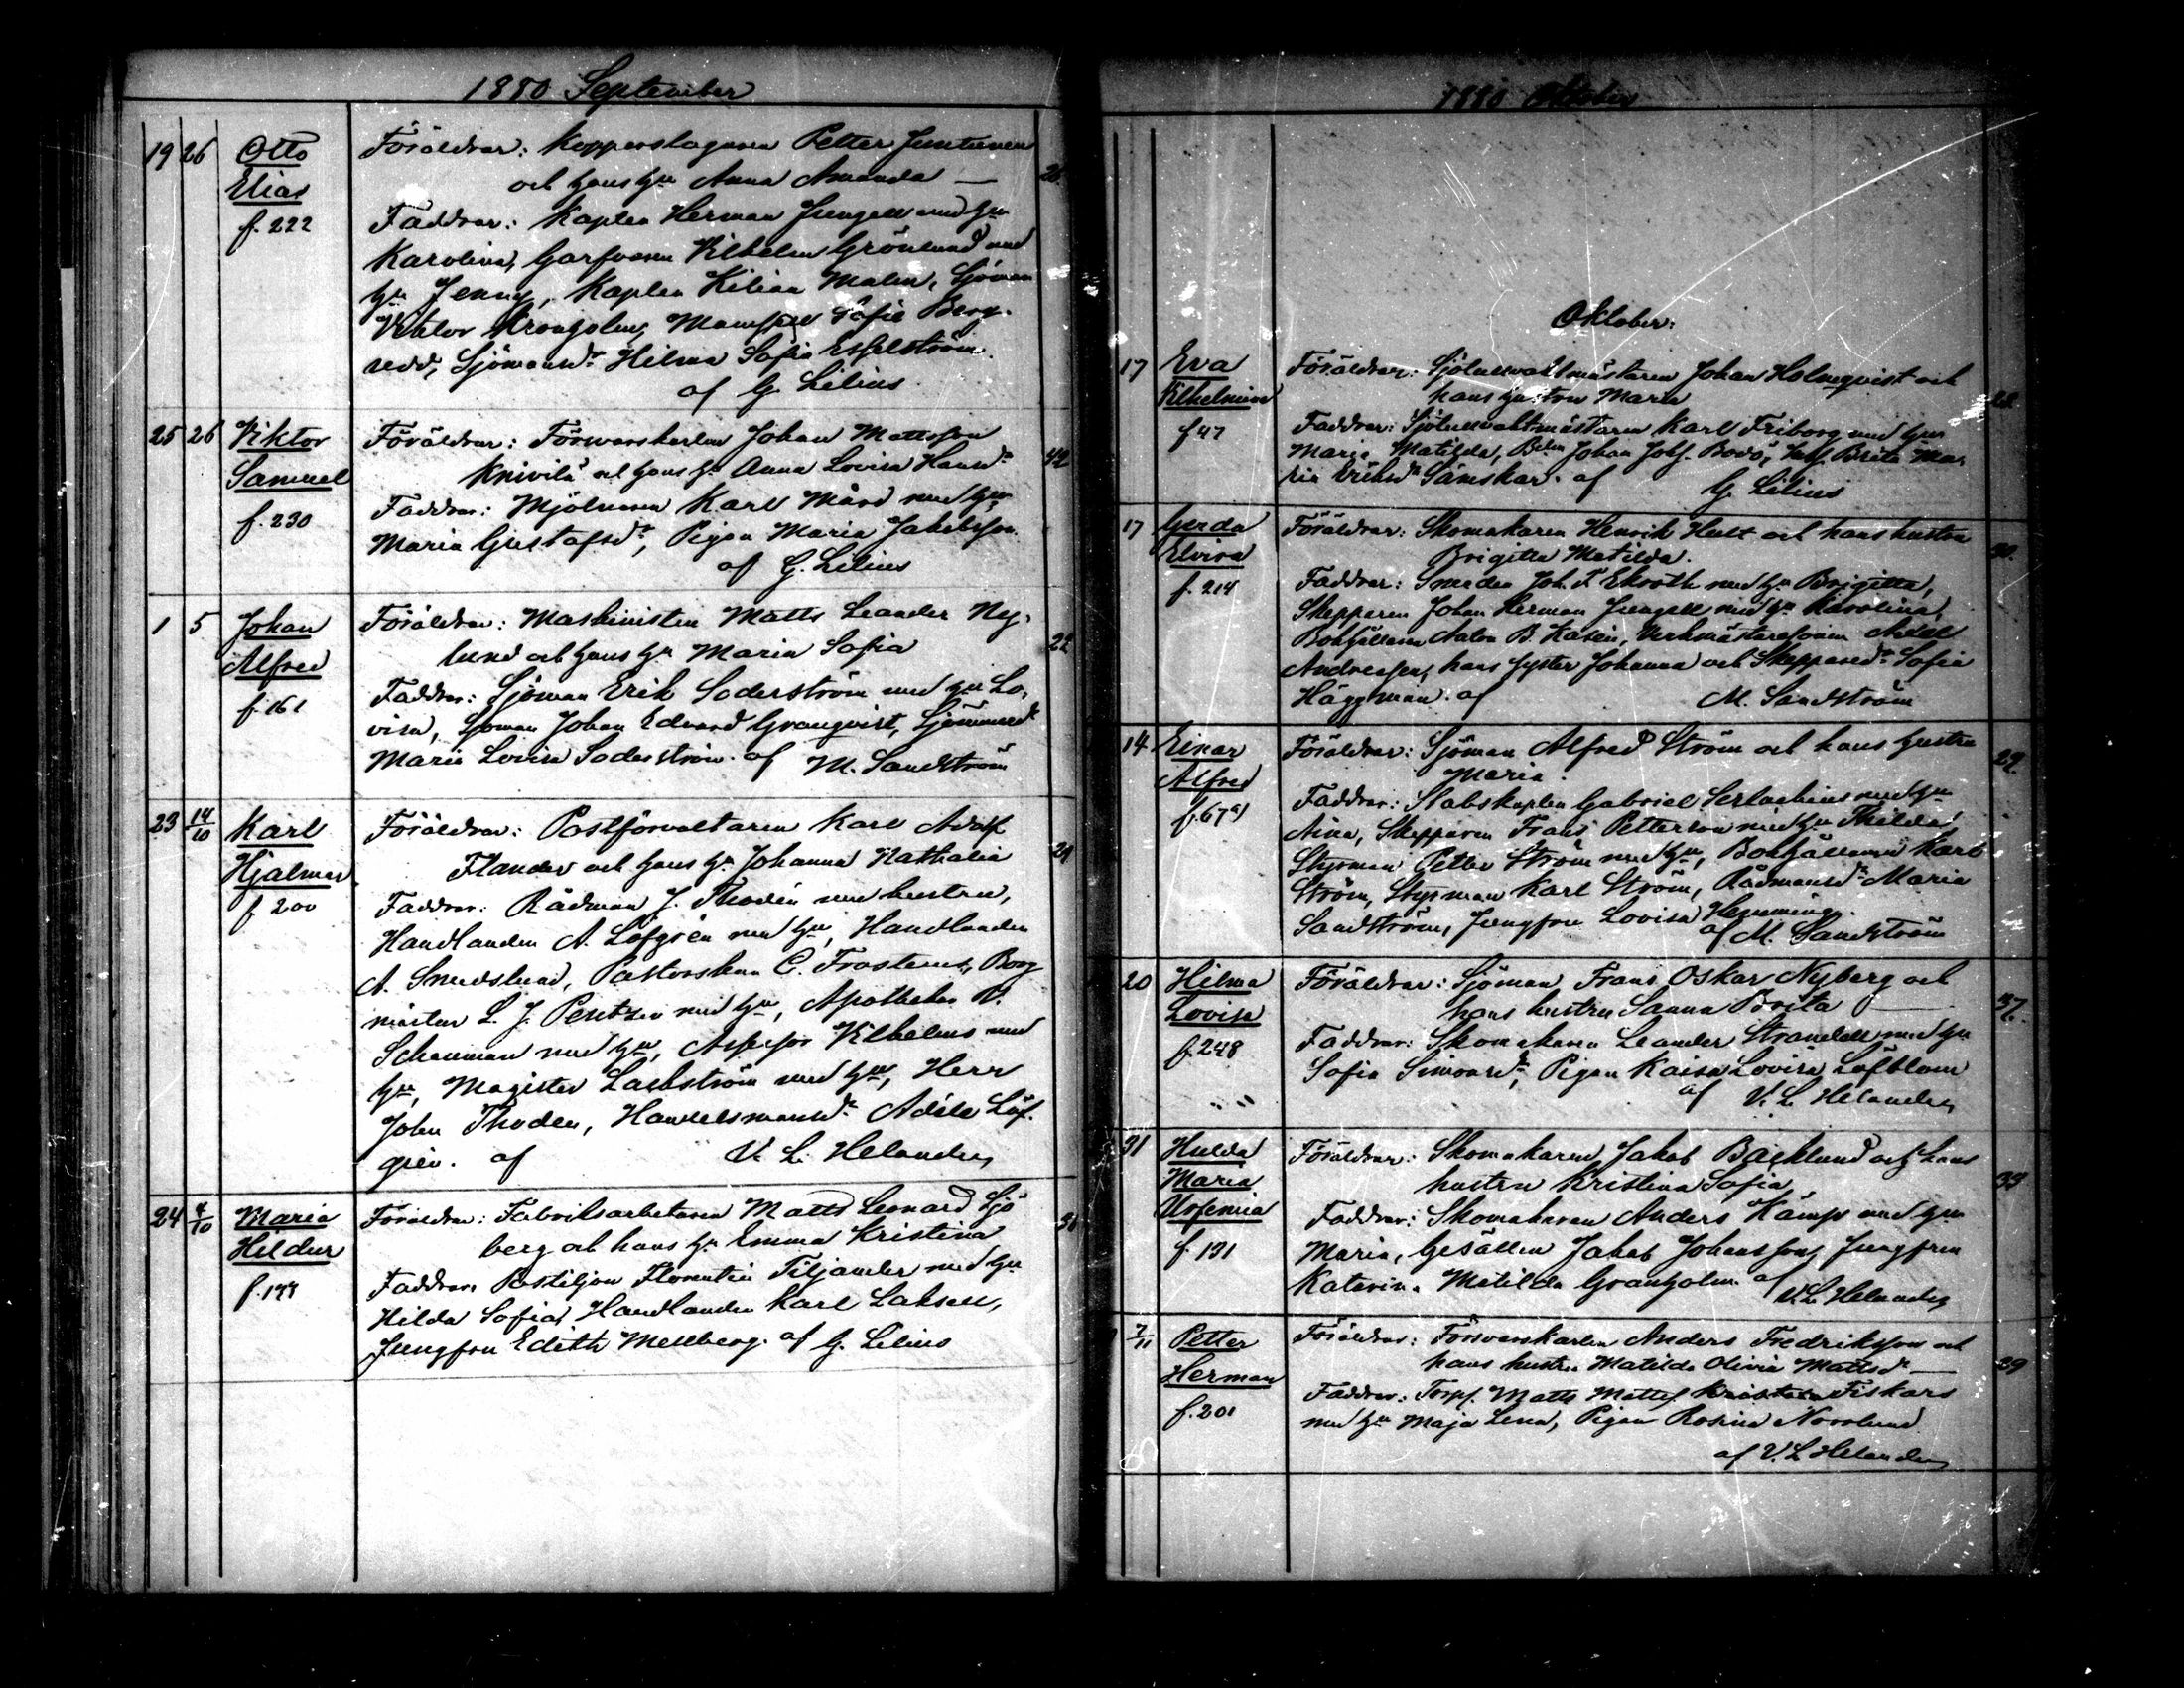 1880 September
19 26 Otto Föräldrar: Kopparslagaren Petter Juntunen
Elias och hans hu Anna Amanda — 26
f. 222 Faddrar: Kapten Herman Jungell med hu
Karolina, Garfvaren Vilhelm Grönlund med
hu Jenny, Kapten Kilian Malm, Sjöman
Viktor Krongolm, Mamsell Sofie Berg-
redd, Sjömansdr Hilma Sofia Esselström.
af G Lilius
25 26 Viktor Föräldrar: Försvarskarlen Johan Mattsson
Samuel Knivilä och hans hu Anna Lovisa Hansdr 42
f. 230 Faddrar: Mjölnaren Karl Mård med hu
Maria Gustafsdr, Pigan Maria Jakobsson.
af G. Lilius
1 5 Johan Föräldrar: Maskinisten Matts Leander Ny-
Alfred lund och hans hu Maria Sofia 22
f. 161 Faddrar: Sjöman Erik Söderström med hu Lo-
visa, Sjöman Johan Edvard Granqvist, Sjömansdr
Maria Lovisa Söderström. af M. Sandström
23 14/10 Karl Föräldrar: Postförvaltaren Karl Adolf
Hjalmar Flander och hans hu Johanna Nathalia 29
f. 200 Faddrar: Rådman J. Thodén med hustru,
Handlanden A. Löfgrén med hu, Handlanden
A. Smedslund, Pastorskan C. Frosterus, Borg
mästar L. J. Pentzin med hu, Apothekar V.
Schauman med hu, Assessor Vilhelms med
hu, Magister Lackström med hu, Herr
John Thodén, Handelsmansdr Adéle Löf-
grén. af V. L. Helander
24 4/10 Maria Föräldrar: Fabriksarbetaren Matts Leonard Sjö
Hildur berg och hans hu Emma Kristina 31
f. 177 Faddrar: Postiljon Florentin Tiljander med hu
Hilda Sofia, Handlanden Karl Laksell,
Jungfru Edith Mellberg. af G. Lilius
1880 Oktober
Oktober:
17 Eva Föräldrar: Sjötullvaktmästaren Johan Holmqvist och
Vilhelmina hans hustru Maria 28.
f 47 Faddrar: Sjötullvaktmästaren Karl Friborg med hu
Maria Matilda, Bdn Johan Johs. Bodö, Brita Ma-
ria Eriksdr Sämskar. af G. Lilius
17 Gerda Föräldrar: Skomakaren Henrik Hult och hans hustru
Elvira Brigitta Matilda. 30.
f. 214 Faddrar: Smeden Joh. F Ekroth med hu Brigitta,
Skepparen Johan Herman Jungell med hu Karolina,
Bokhållaren Anton B. Kasén, Verkmästaresonen Axel
Andressen, hans syster Johanna och Skepparedr Sofia
Häggman. af M. Sandström
14 Einar Föräldrar: Sjöman Alfred Ström och hans hustru
Alfred Maria. 29.
f. 67 a) Faddrar: Stabskapten Gabriel Serlachius med hu
Aina, Skepparen Frans Petterson med hu Thilda,
Styrman Petter Ström med hu, Bokhållaren Karl
Ström, Styrman Karl Ström, Rådmansdr Maria
Sandström, Jungfru Lovisa Hemming.
af M. Sandström
20 Hilma Föräldrar: Sjöman Frans Oskar Nyberg och
Lovisa hans hustru Sanna Brita — 37.
f. 248 Faddrar: Skomakaren Leander Strandell med hu
Sofia Simonsdr, Pigan Kaisa Lovisa Löfblom
af V. L. Helander
31 Hulda Föräldrar: Skomakaren Jakob Backlund och hans
Maria hustru Kristina Sofia 33
Eufemia Faddrar: Skomakaren Anders Kämp med hu
f. 131 Maria, Gesällen Jakob Johansson, Jungfru
Katarina Matilda Granholm af
V. L. Helander
7/11 Petter Föräldrar: Försvarskarlen Anders Fredriksson och
Herman hans hustru Matilda Olivia Mattsdr — 29
f. 201 Faddrar: Torp. Matts Matts. Fiskars
med hu Maja Lena, Pigan Rosina Norrlund
af V. L Helander